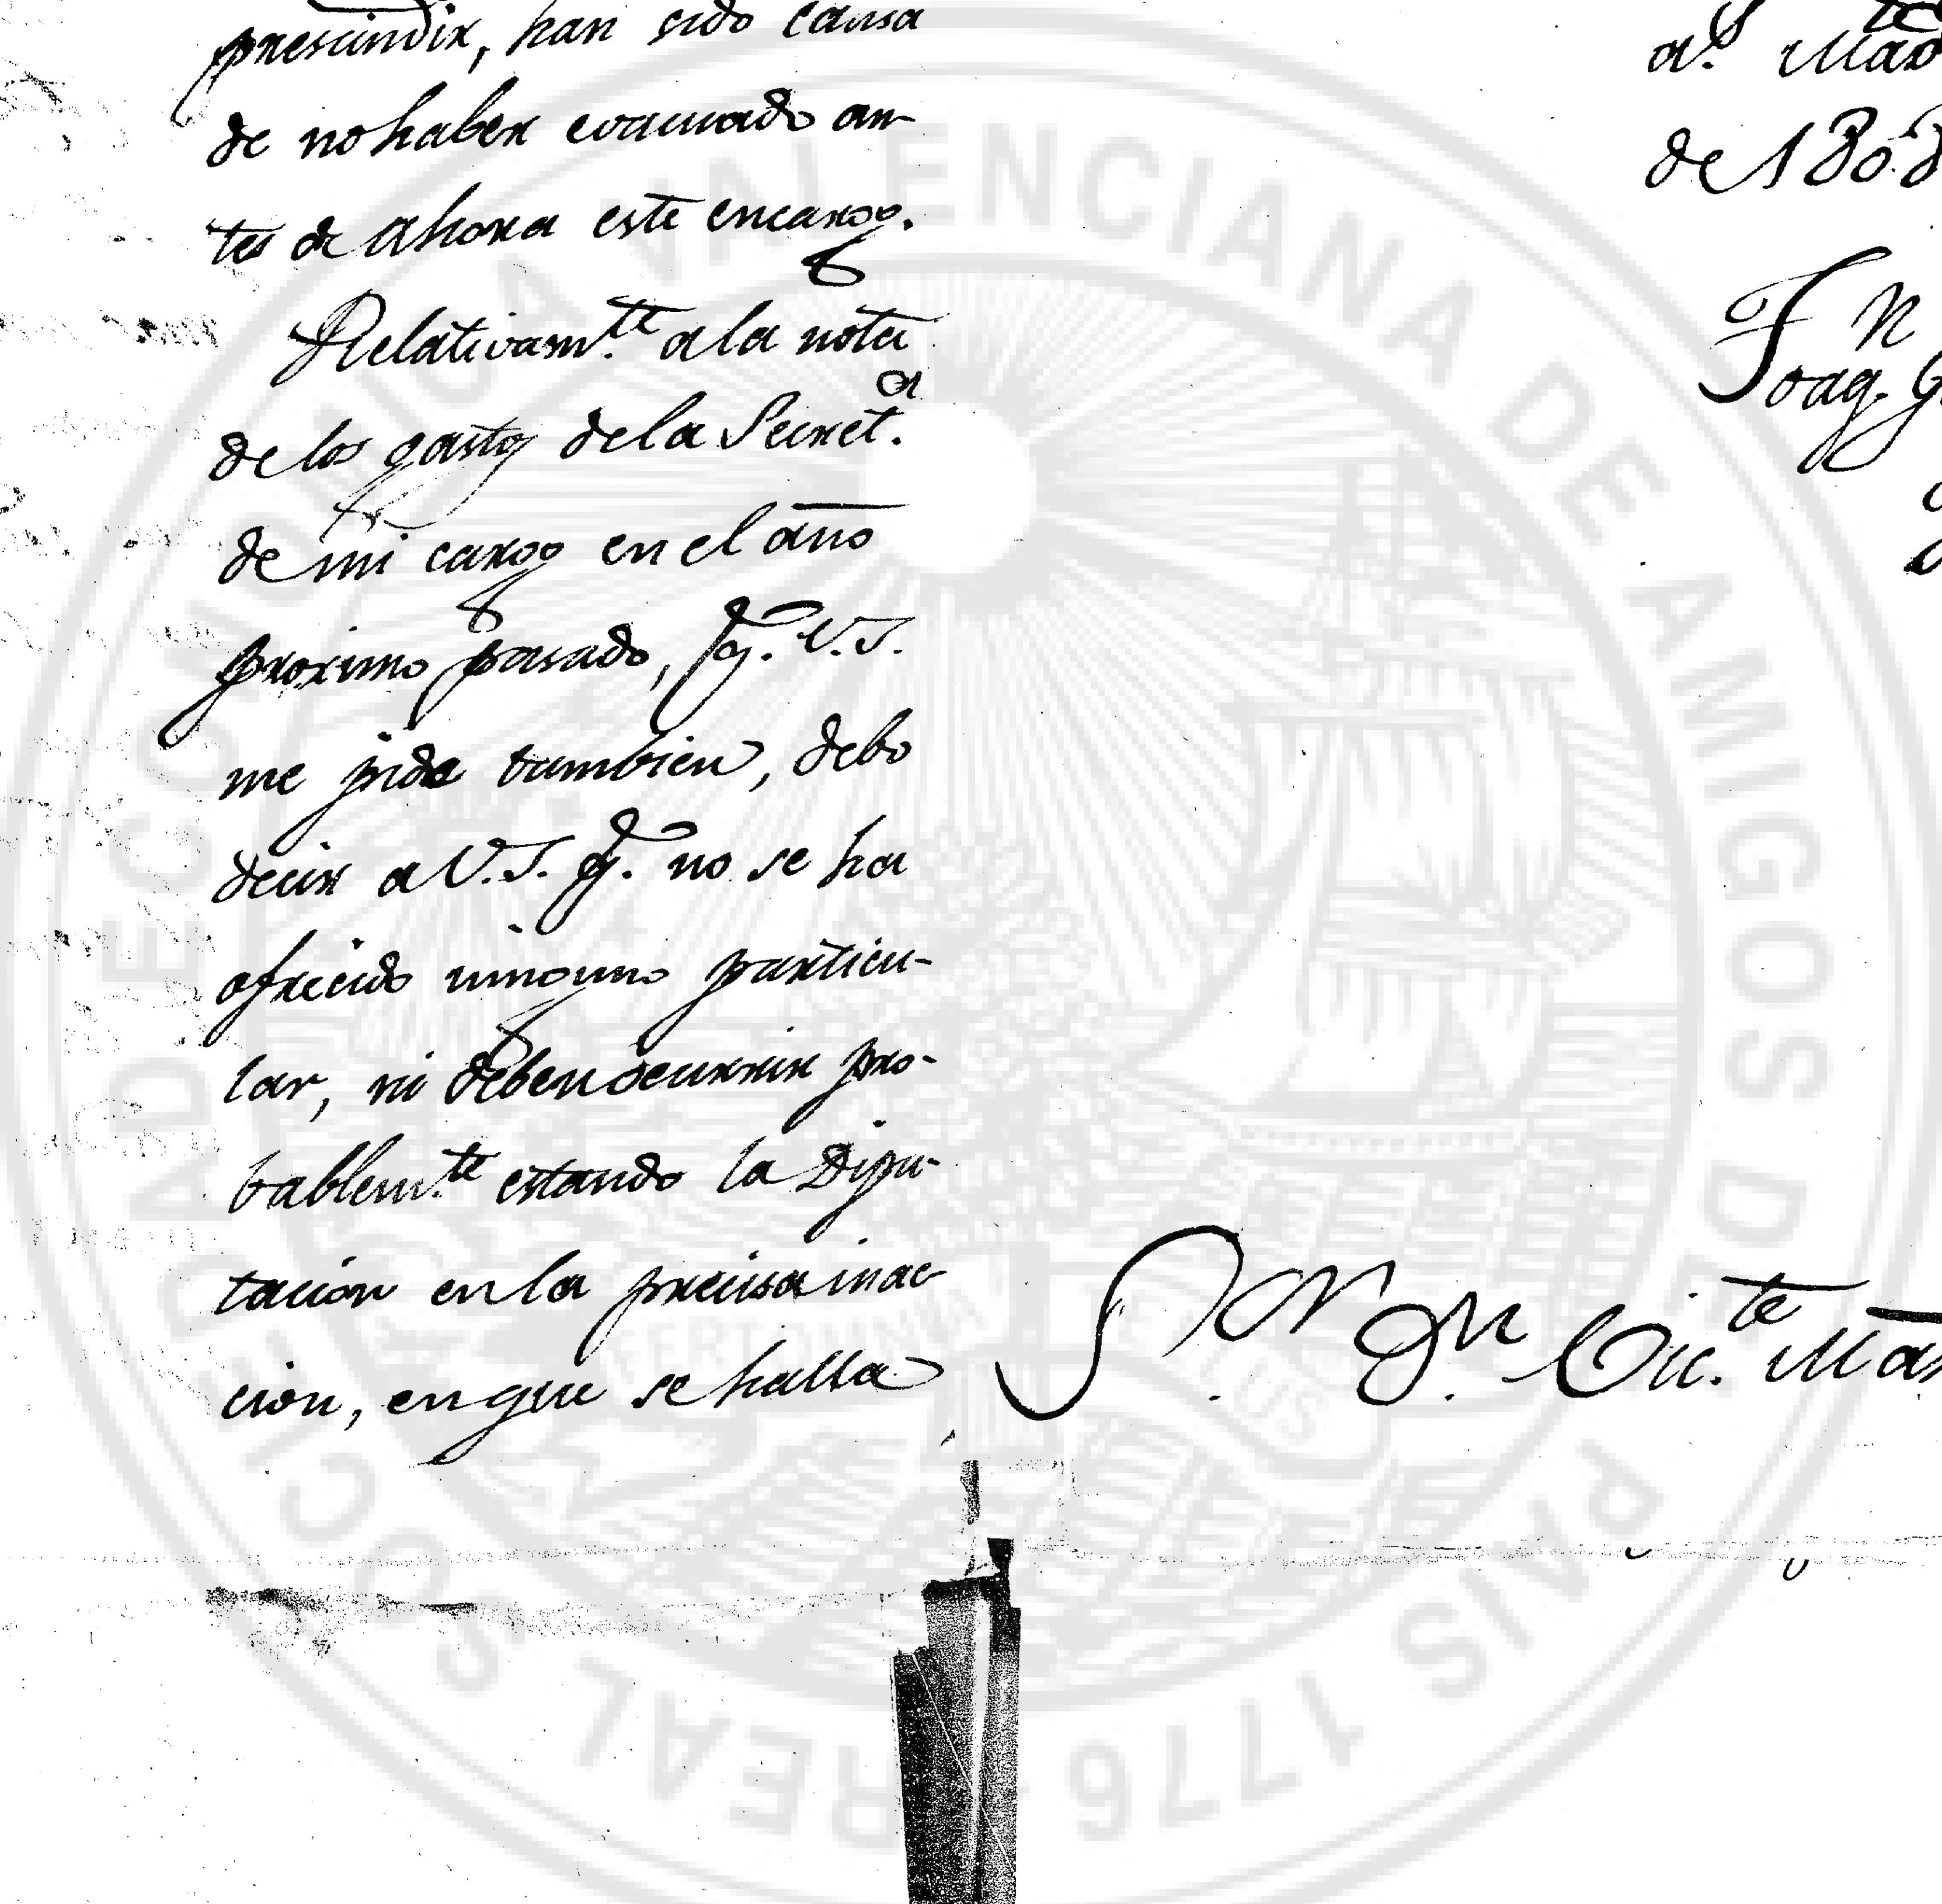 prescindir, han sido causa
de no haber evacuado an-
tes de ahora este encargo.
Relativam.te a la nota
de los gastos de la Secret.a
de mi cargo en el año
proximo pasado, q.e V.S.
me pide tambien, debo
decir a V.S. q.e no se ha
ofrecido ninguno particu-
lar, ni deben ocurrir pro-
bablem.te estando la Dipu-
tacion en la precisa inac-
cion, en que se halla
de 1808
Joaq.n
S.or D.n Vic.te
REAL SOCIEDAD ECONOMICA VALENCIANA DE AMIGOS DEL PAIS 1776